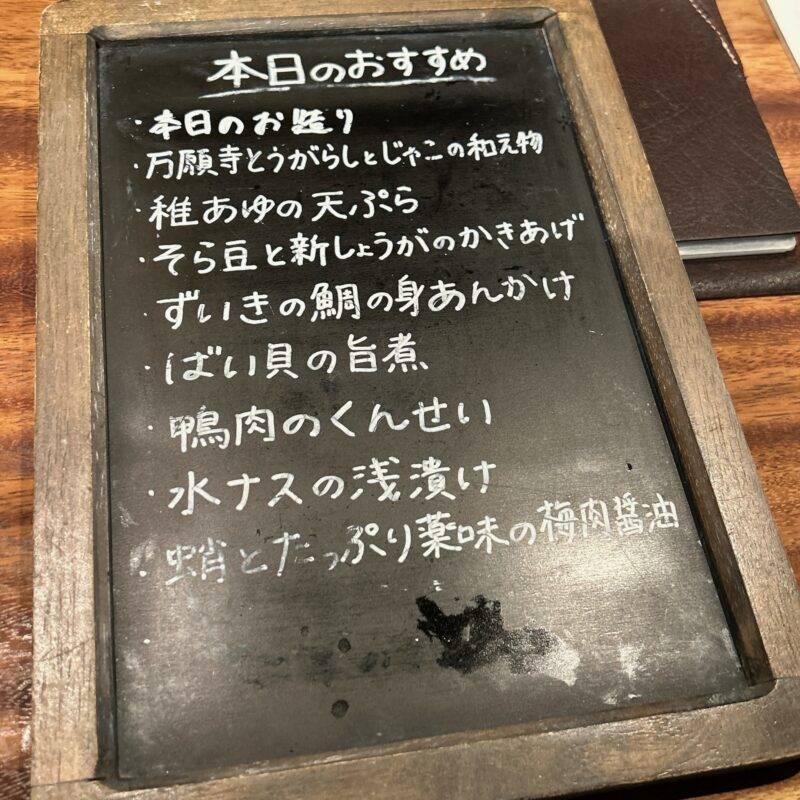 本日のおすすめ
・本日のお造り
・万願寺とうがらしとじゃこの和え物
・稚あゆの天ぷら
・そら豆と新しょうがのかきあげ
・ずいきの鯛の身あんかけ
・ばい貝の旨煮
・鴨肉のくんせい
・水ナスの浅漬け
・蛸とたっぷり薬味の梅肉醤油